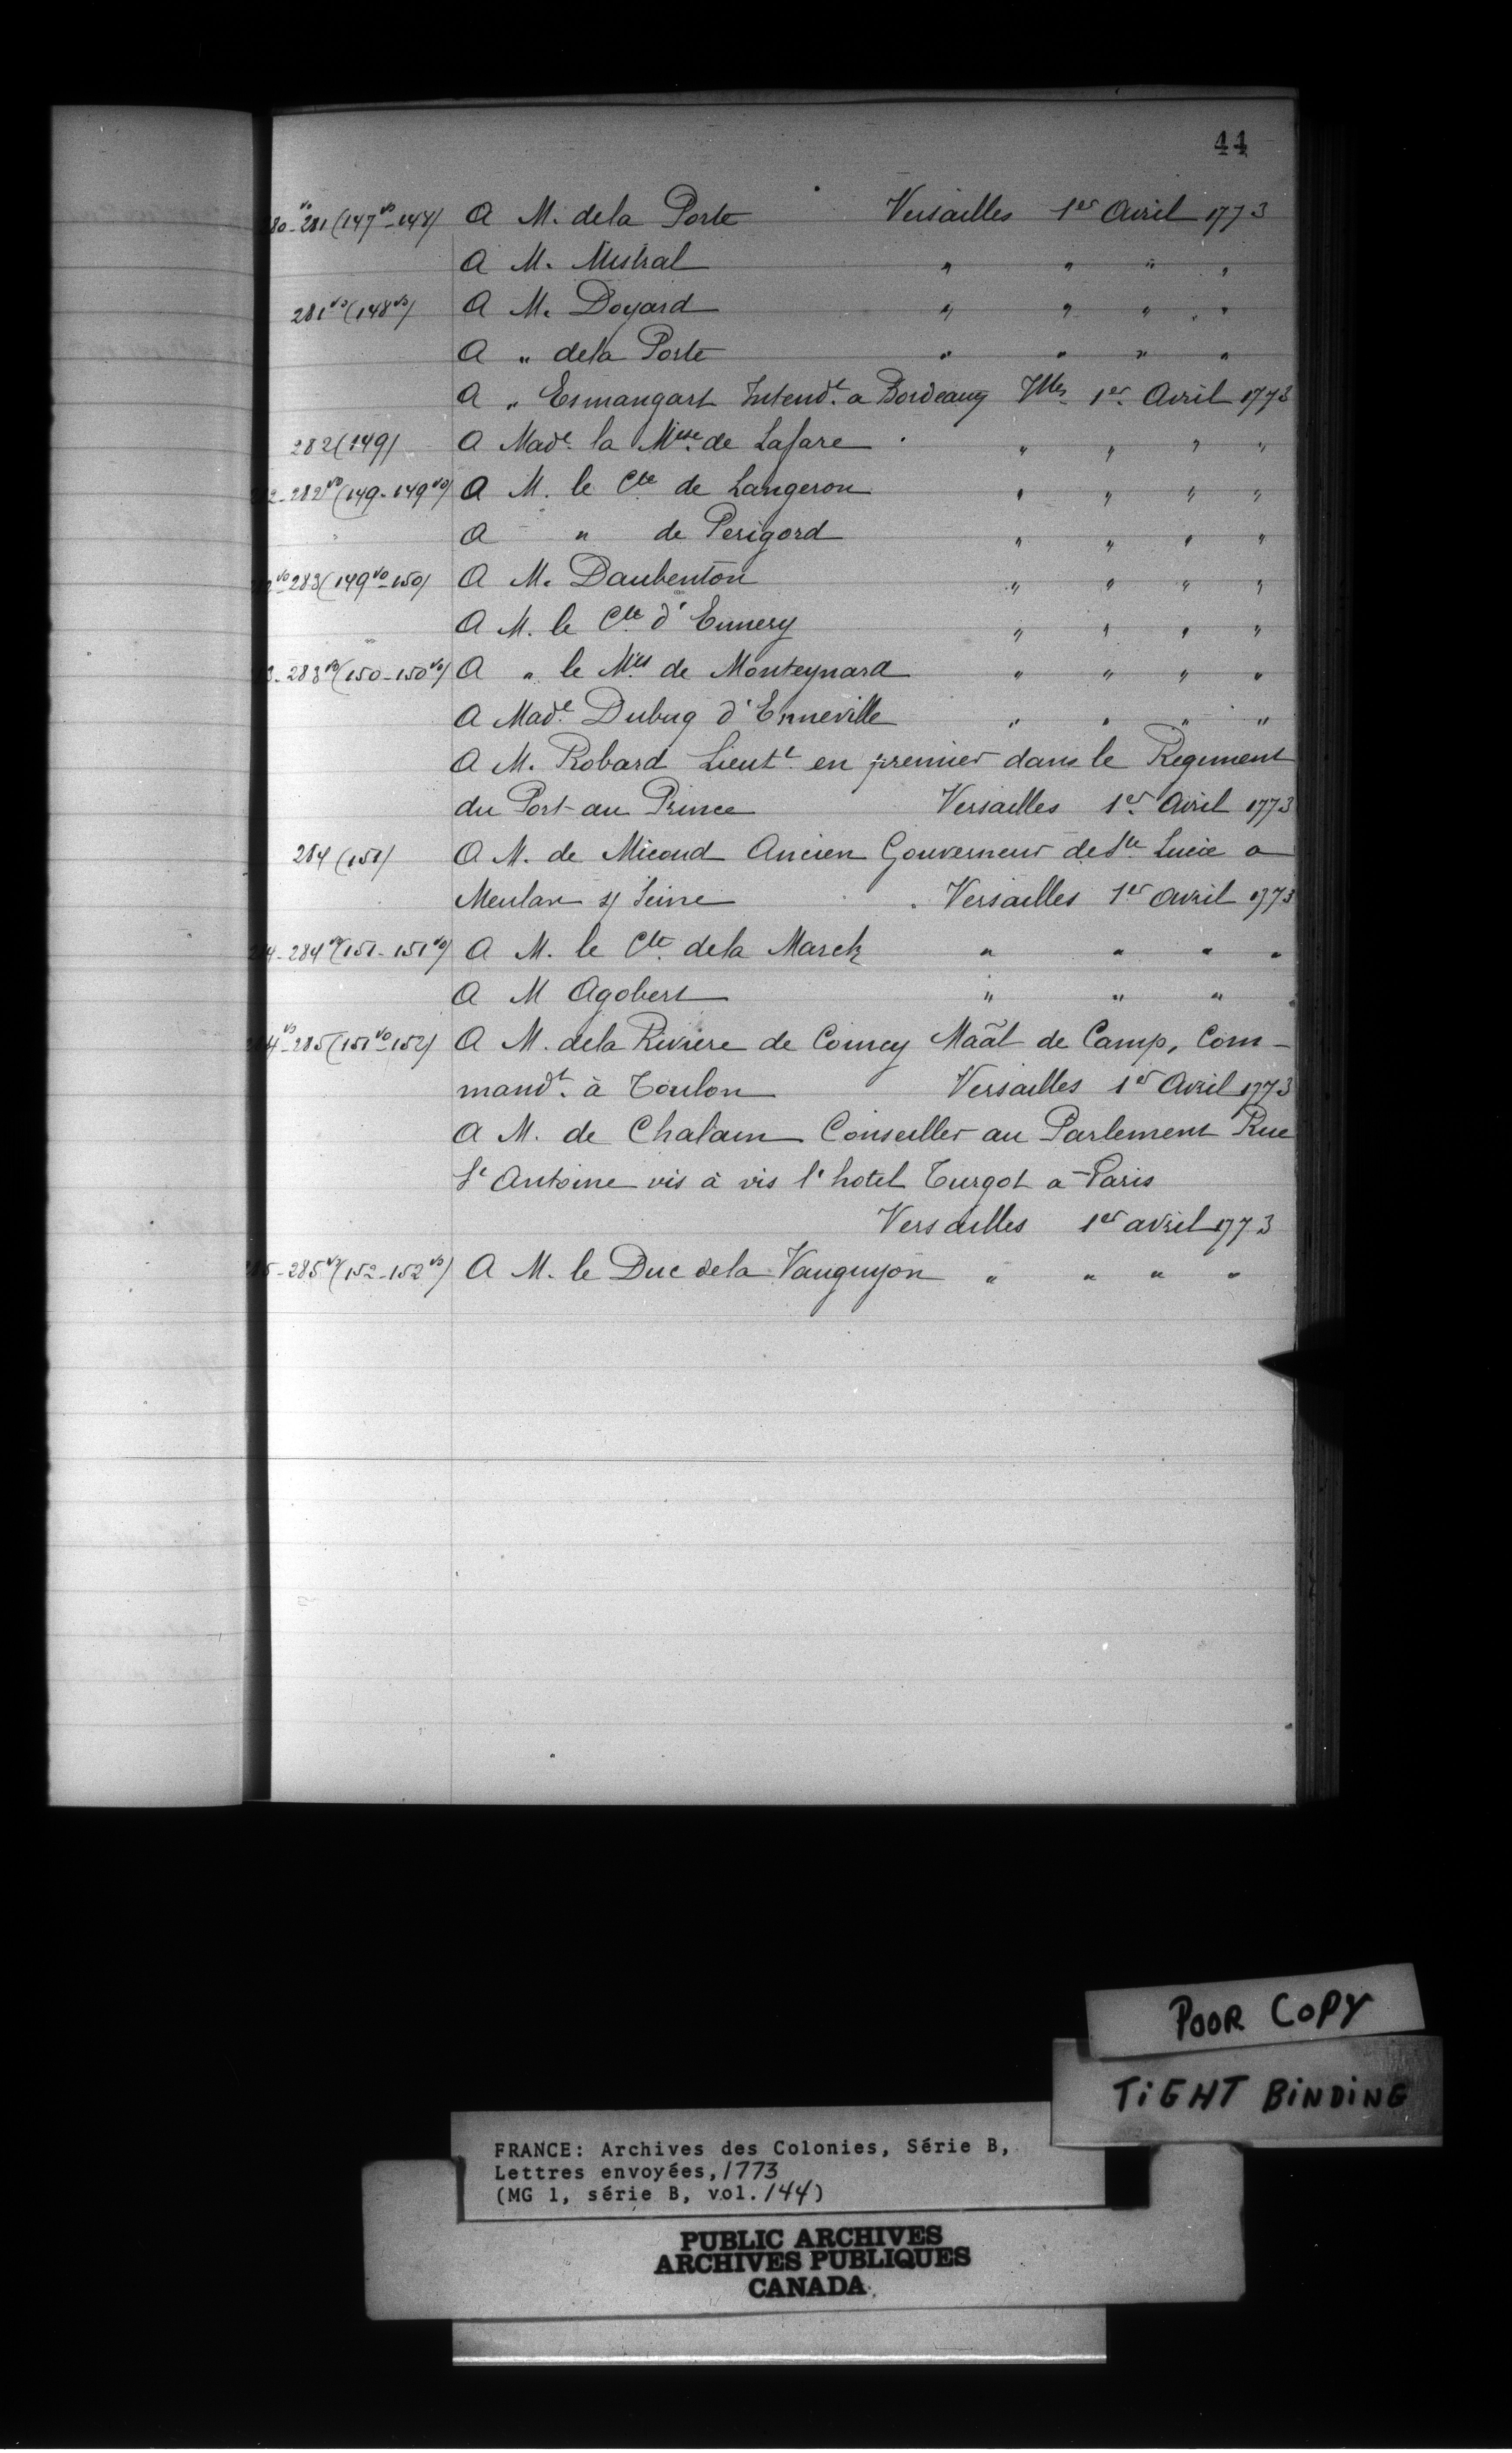 44
280vo-281 (147vo-148) A M. de la Porte Versailles 1er Avril 1773
A M. Mistral " " " "
281vo (148vo) A M. Doyard " " " "
A " de la Porte " " " "
A " Esmangart Intendt a Bordeaux Vlles 1er Avril 1773
282 (149) A Made la Mise de Lafare " " " "
282-282vo (149-149vo) A M. le Cte de Langeron " " " "
A " de Perigord " " " "
282vo-283 (149vo-150) A M. Daubenton " " " "
A M. le Cte d'Ennery " " " "
283-283vo (150-150vo) A " le Mis de Monteynard " " " "
A Made Dubuq d'Enneville " " " "
A M. Robard Lieutt en premier dans le Regiment
du Port-au Prince Versailles 1er Avril 1773
284 (151) A M. de Micoud Ancien Gouverneur de Ste Lucie a
Meulan s/ Seine Versailles 1er Avril 1773
284-284vo (151-151vo) A M. le Cte de la Marck " " " "
A M Agobert " " " "
284vo-285 (151vo-152) A M. de la Riviere de Comcy Maãl de Camp, Com-
mandt à Toulon Versailles 1er Avril 1773
A M. de Chalam Conseiller au Parlement Rue
St Antoine vis à vis l'hotel Turgot a Paris
Versailles 1er avril 1773
285-285vo (152-152vo) A M. le Duc de la Vauguyon " " " "
POOR COPY
TiGHT BiNDiNG
FRANCE: Archives des Colonies, Série B,
Lettres envoyées, 1773
(MG 1, série B, vol. 144)
PUBLIC ARCHIVES
ARCHIVES PUBLIQUES
CANADA